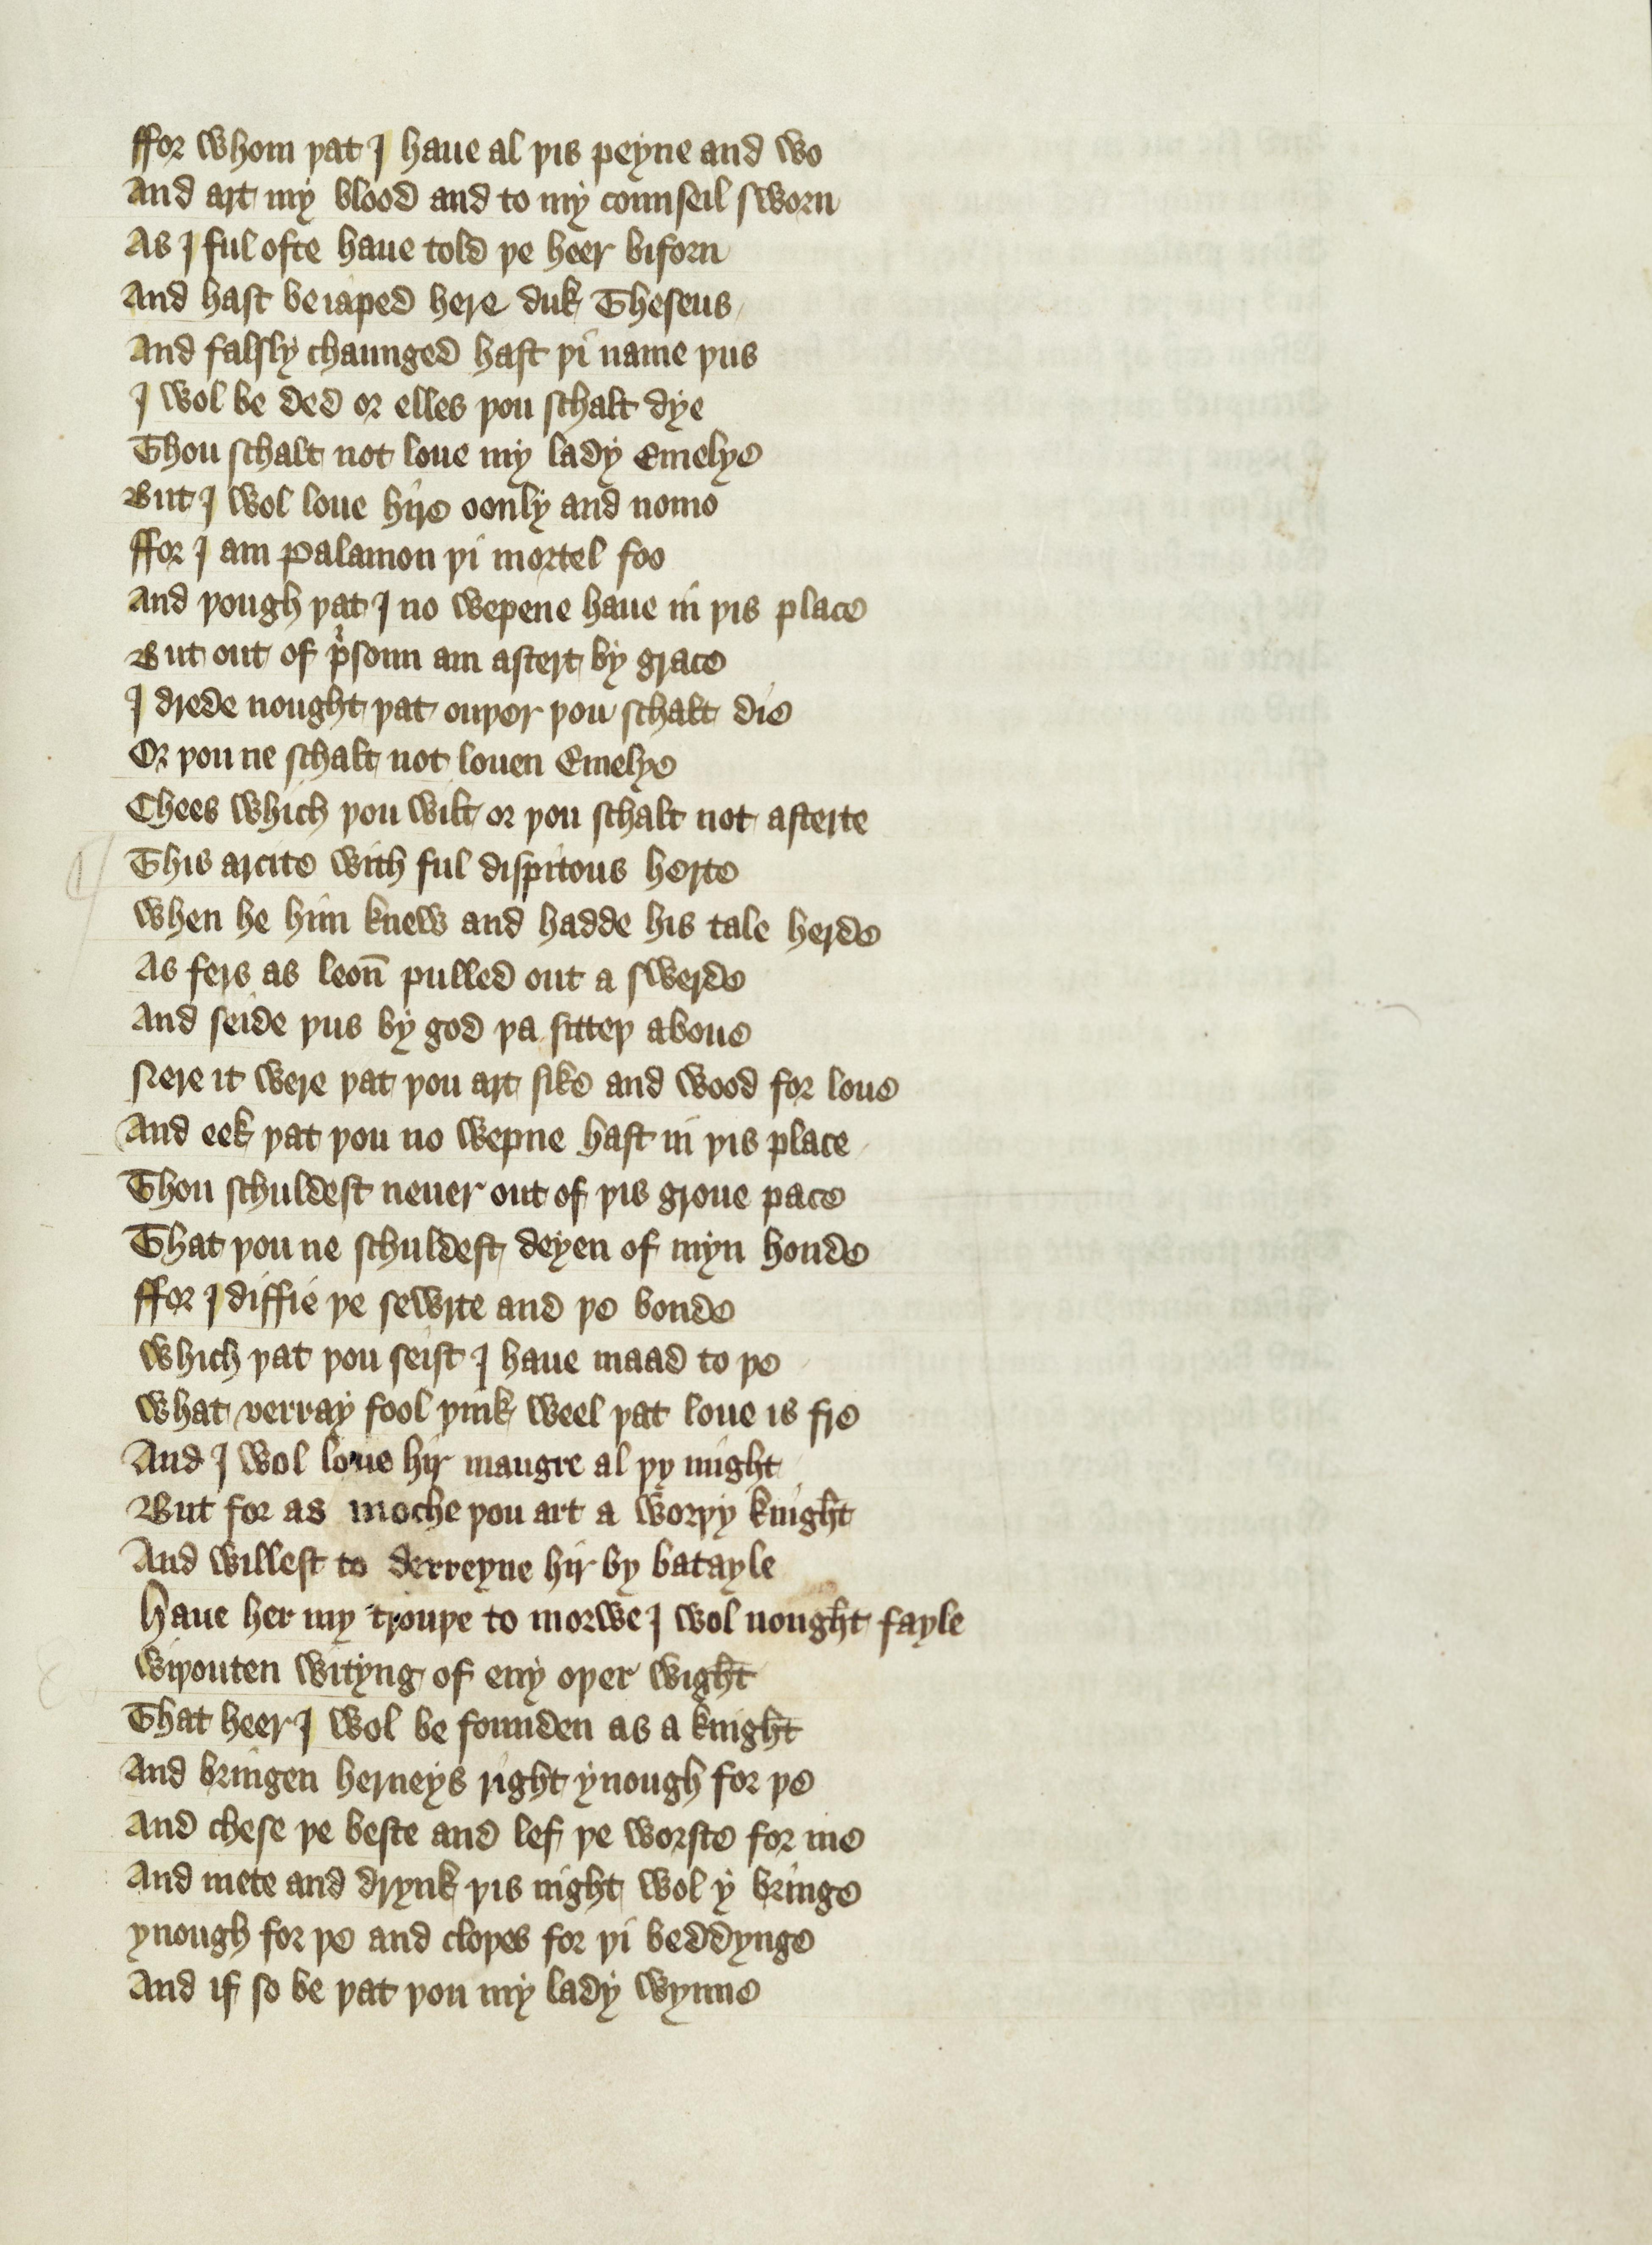 ffor whom þat I haue al þis peyne and wo
And art my blood and to my counseil sworn
As I ful ofte haue told þe heer biforn
And hast beiaped here duk Theseus
And falsly chaunged hast þi name þus
I wol be ded or elles þou schalt dye
Thou schalt not loue my lady Emelye
But I wol loue hire oonly and nomo
ffor I am Palamon þi mortel foo
And þough þat I no wepene haue in þis place
But out of p̉soun am astert by grace
I drede nought þat ouþer þou schalt die
Or þou ne schalt not louen Emelye
Chees which þou wilt or þou schalt not asterte
This arcite with ful dispitous herte
When he him knew and hadde his tale herde
As fers as leon̄ pulled out a swerde
And seide þus by god þa sitteþ aboue
Nere it were þat þou art sike and wood for loue
And eek þat þou no wepne hast in þis place
Thou schuldest neuer out of þis groue pace
That þou ne schuldest deyen of myn honde
ffor I diffie þe sewrte and þe bonde
Which þat þou seist I haue maad to þe
What verray fool þink weel þat loue is fre
And I wol loue hir maugre al þy might
But for as moche þou art a worþy knight
And willest to derreyne hir by batayle
Haue her my trouþe to morwe I wol nought fayle
Wiþouten wityng of eny oþer wight
That heer I wol be founden as a knight
And bringen herneys right ynough for þe
And chese þe beste and lef þe worste for me
And mete and drynk þis night wol y bringe
ynough for þe and cloþes for þi beddynge
And if so be þat þou my lady wynne